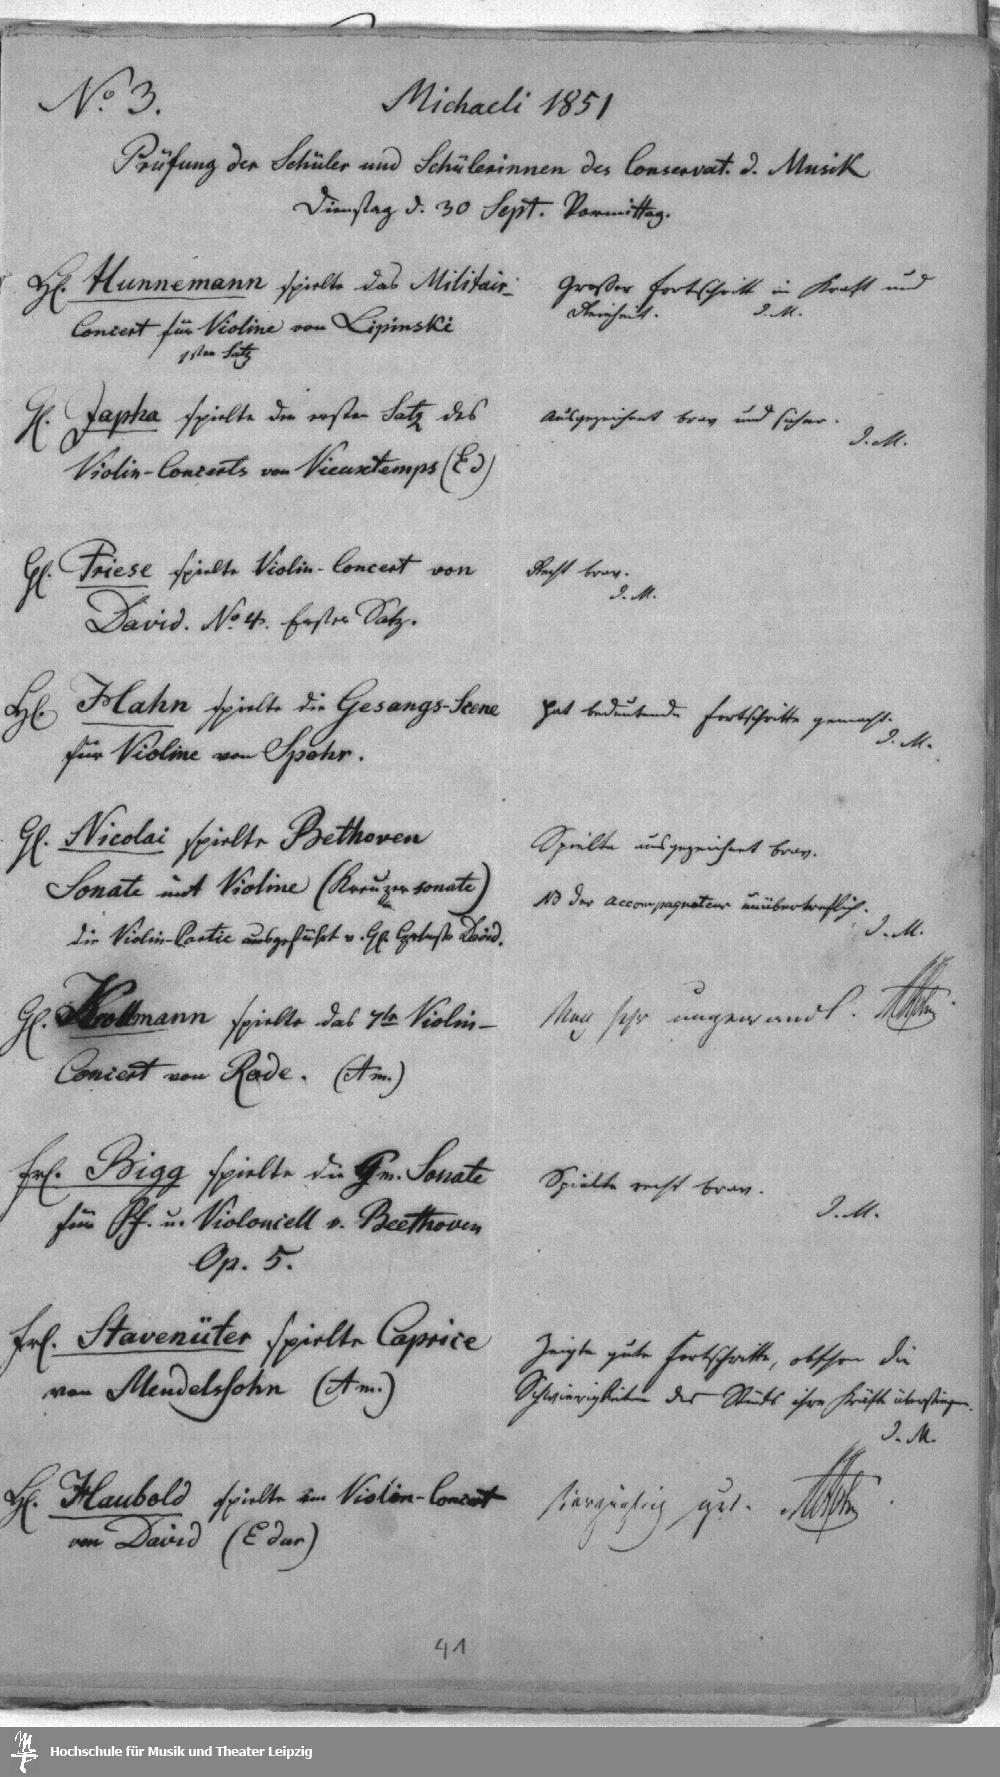 No. 3. Michaeli 1851
Prüfung der Schüler und Schülerinnen des Conservat. d. Musik
Dienstag d. 30 Sept. Vormittag.
H. Hunnemann spielte das Militair-
Concert für Violine von Lipinski
1ster Satz
Großer Fortschritt in Kraft und
Reinheit. I. M.
H. Japha spielte den ersten Satz des
Violin-Concerts von Vieuxtemps (E d)
Ausgezeichnet brav und sicher.
I. M.
H. Friese spielte Violin-Concert von
David. No. 4. Erster Satz.
Recht brav.
I. M.
H. Hahn spielte die Gesangs-Scene
für Violine von Spohr.
Hat bedeutende Fortschritte gemacht.
I. M.
H. Nicolai spielte Bethoven
Sonate mit Violine (Kreuzersonate)
die Violin-Partie ausgeführt v. H. David.
Spielte ausgezeichnet brav.
NB der Accompagnateur unübertreflich.
I. M.
H. Krollmann spielte das 7te Violin-
Concert von Rode. (A m.)
Noch sehr ungewandt.
Frl. Bigg spielte die G m. Sonate
für Pf. u. Violoncell v. Beethoven
Op. 5.
Spielte recht brav.
I. M.
Frl. Stavenüter spielte Caprice
von Mendelssohn (A m.)
Zeigte gute Fortschritte, obschon die
Schwierigkeiten des Stücks ihre Kräfte überstiegen.
I. M.
H. Haubold spielte ein Violin-Concert
von David (E dur)
Vorzüglich gut.
41
Hochschule für Musik und Theater Leipzig